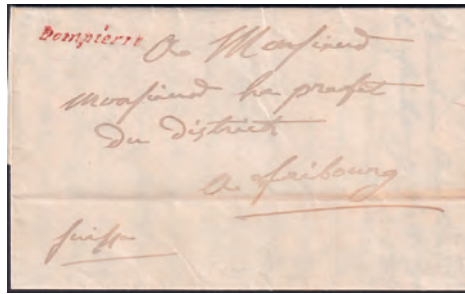 Dompierre
A Monsieur
monsieur le prefet
du district
a fribourg
suisse